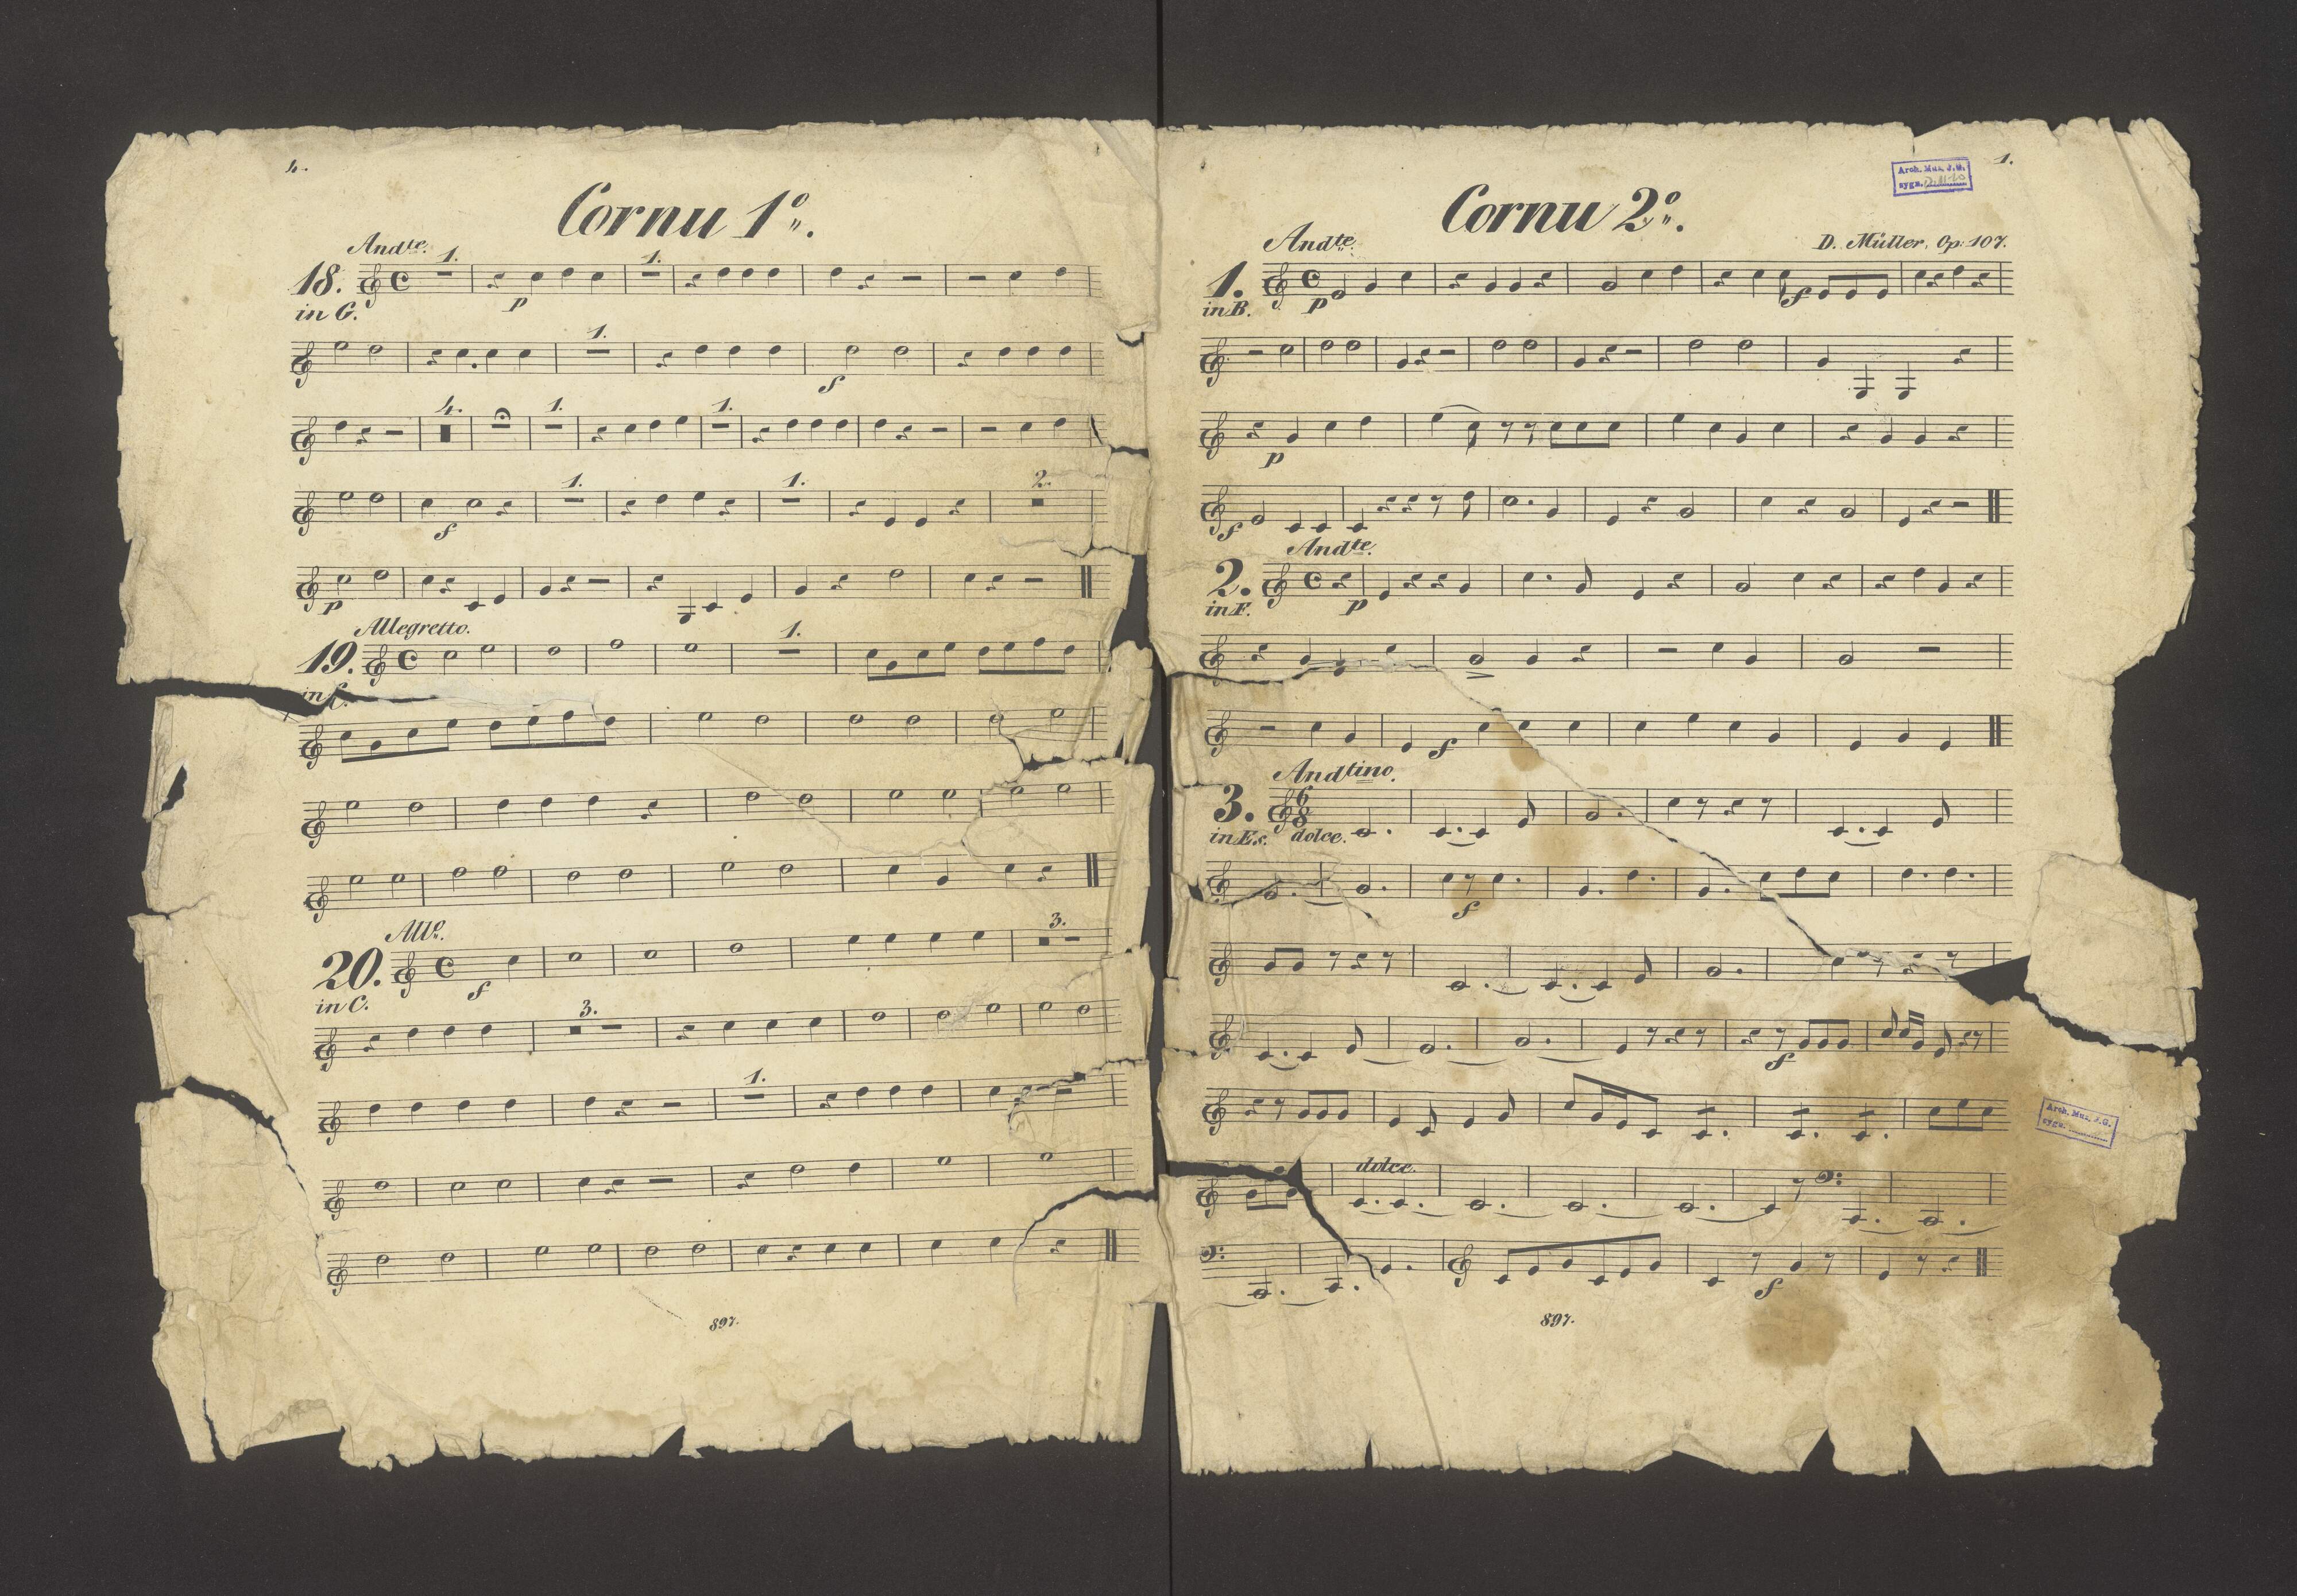 4.
Cornu 1º.
Andte.
1.
1.
18.
p
in G.
1.
f
4.
1.
1.
1.
1.
2.
f
p
Allegretto.
19.
1.
in C.
Allº.
20.
3.
f
in C.
3.
1.
897.
1.
Arch. Mus. J.G.
sygn.
Cornu 2º.
Andte.
D. Müller, Op: 107.
1.
p
f
in B.
p
f
Andte.
2.
p
in F.
f
Andtino.
3.
6
8
in Es.
dolce.
f
f
Arch. Mus. J.G.
sygn.
dolce.
f
897.